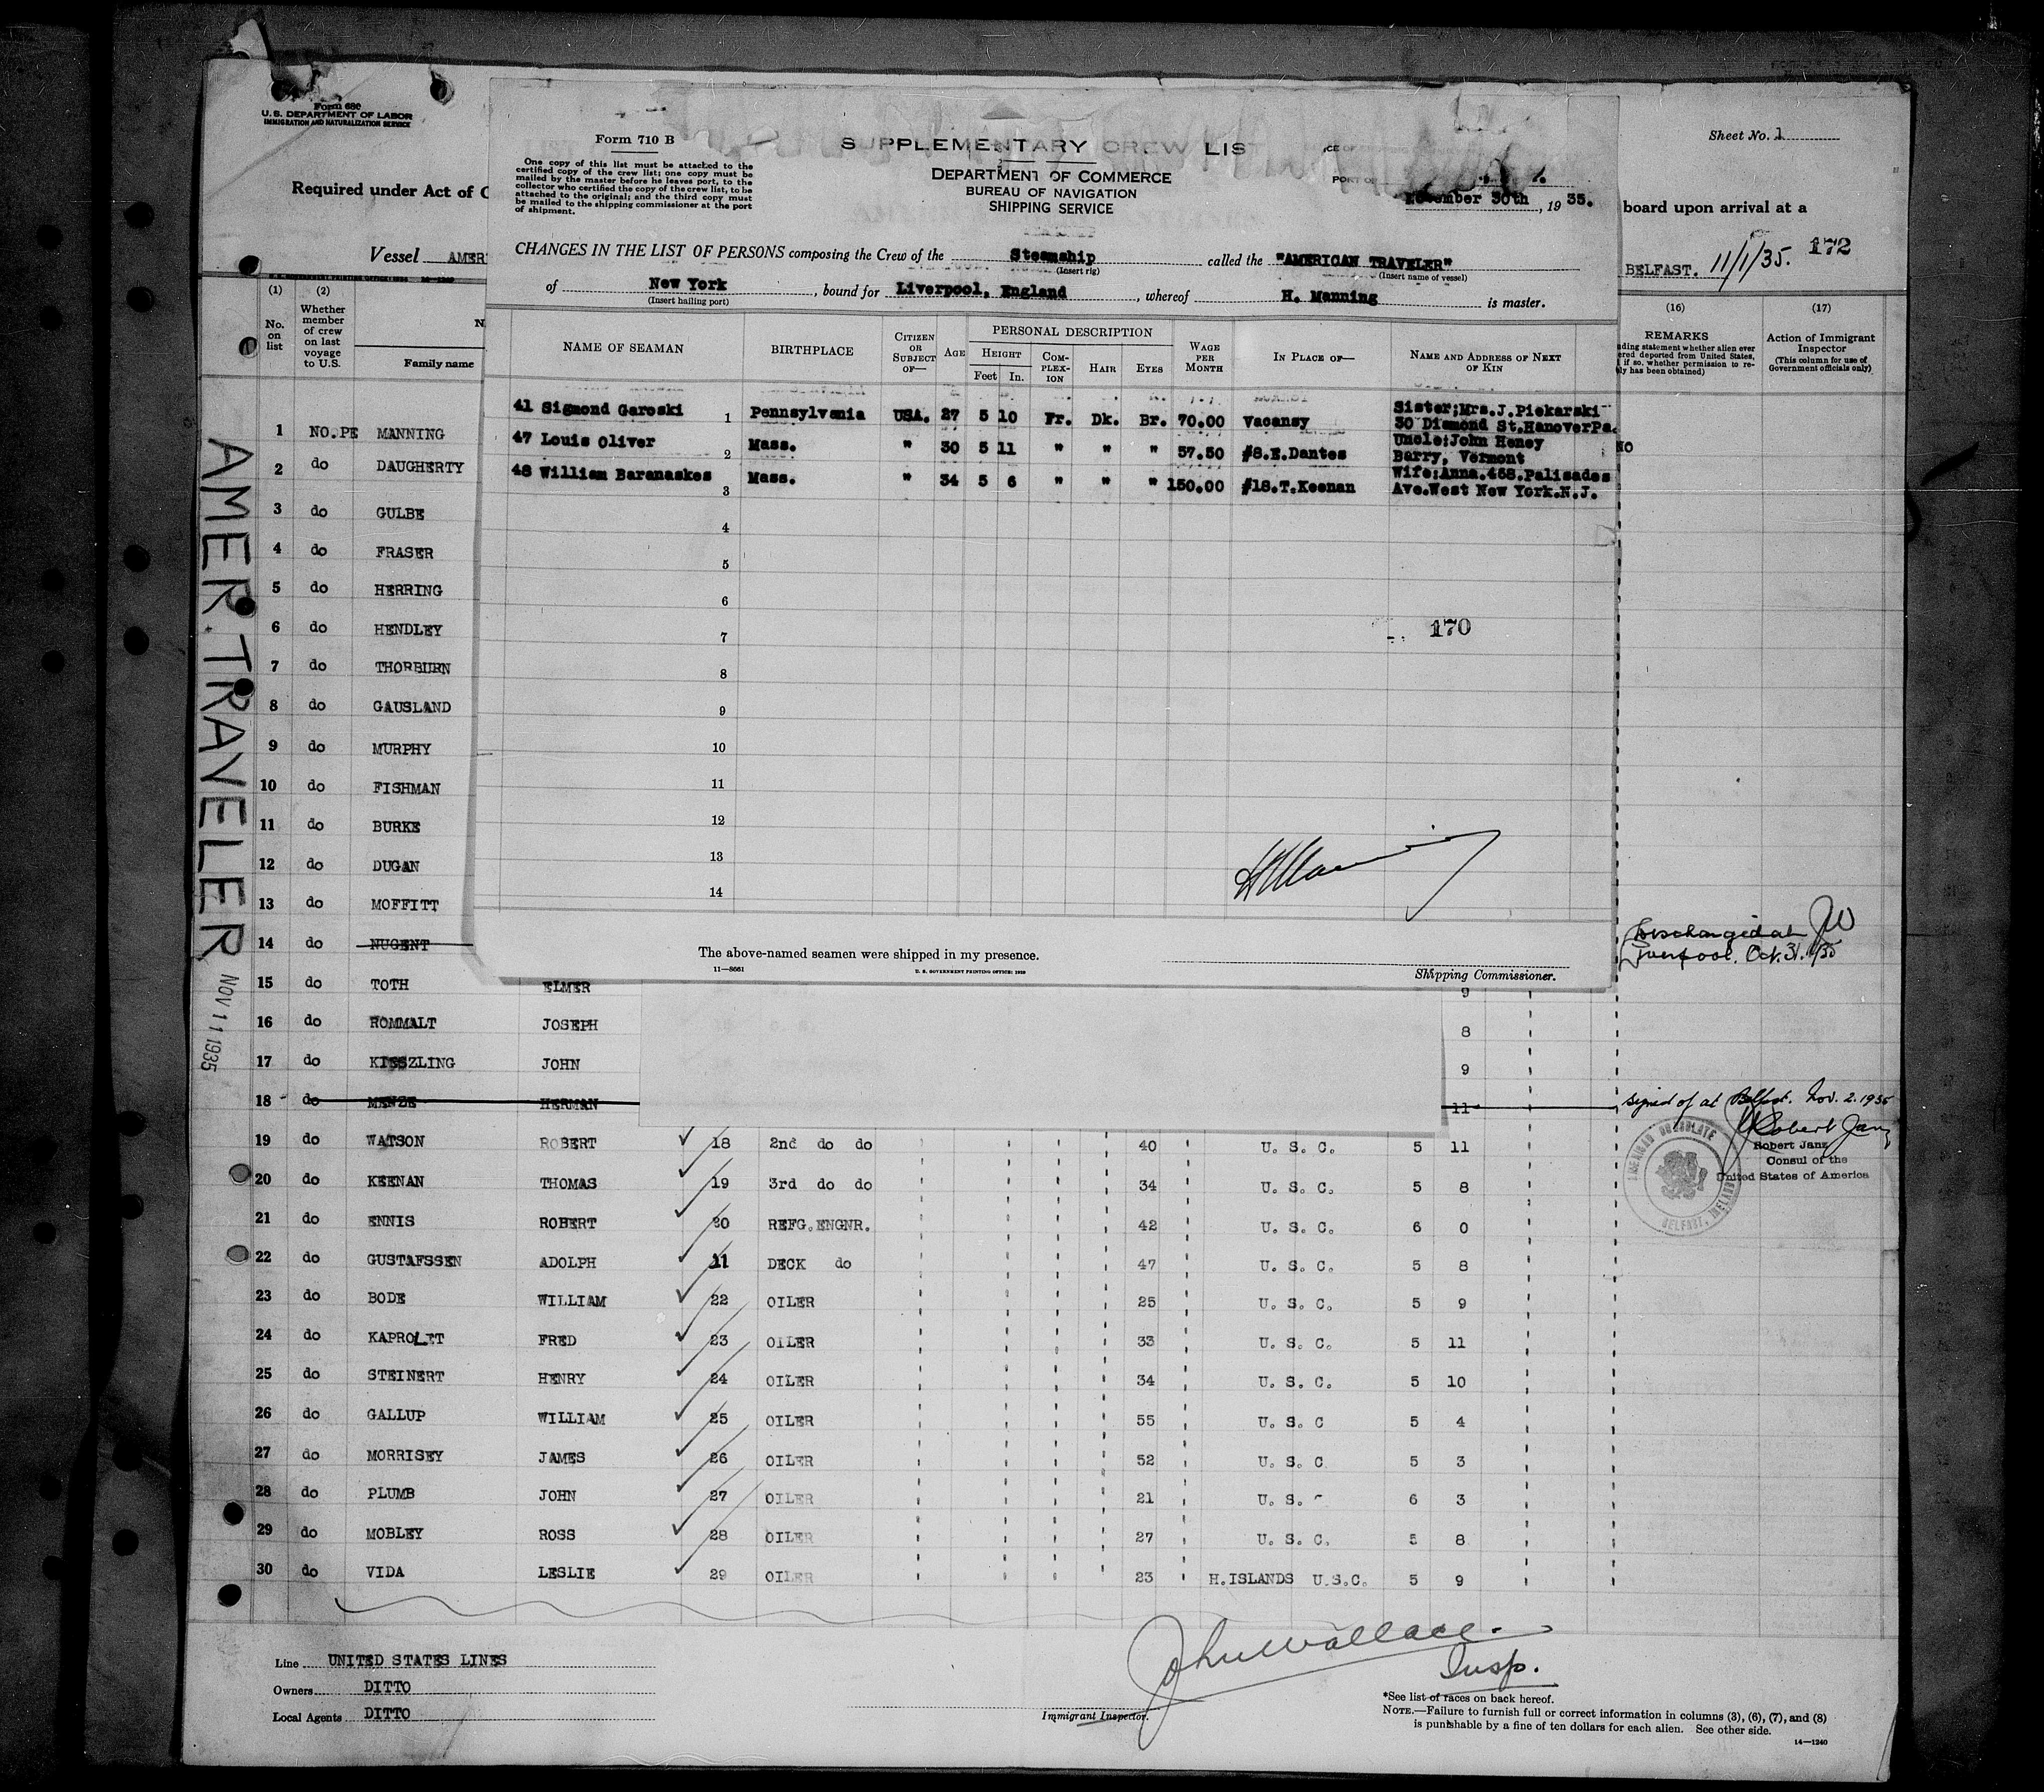 Form 680
U.S. DEPARTMENT OF LABOR
IMMIGRATION AND NATURALIZATION SERVICE
Required under Act of C
Vessel AMER
Sheet No. 1
board upon arrival at a
BELFAST. 11/1/35. 172
Form 710 B
One copy of this list must be attached to the
certified copy of the crew list; one copy must be
mailed by the master before he leaves port, to the
collector who certified the copy of the crew list, to be
attached to the original; and the third copy must
be mailed to the shipping commissioner at the port
of shipment.
SUPPLEMENTARY CREW LIS
DEPARTMENT OF COMMERCE
BUREAU OF NAVIGATION
SHIPPING SERVICE
ICE OF
PORT OF
30th, 1935.
CHANGES IN THE LIST OF PERSONS composing the Crew of the Steamship called the "AMERICAN TRAVELER"
(Insert rig) (Insert name of vessel)
of New York, bound for Liverpool, England, whereof H. Manning is master.
(Insert hailing port)
NAME OF SEAMAN BIRTHPLACE CITIZEN OR SUBJECT OF— AGE PERSONAL DESCRIPTION HEIGHT Feet In. COM-PLEX-ION HAIR EYES WAGE PER MONTH IN PLACE OF— NAME AND ADDRESS OF NEXT OF KIN
41 Sigmond Garoski 1 Pennsylvania USA. 27 5 10 Fr. Dk. Br. 70.00 Vacansy Sister;Mrs.J.Piekarski
30 Diamond St.HanoverPa.
47 Louis Oliver 2 Mass. " 30 5 11 " " " 57.50 #8.E.Dantes Uncle:John Heney
Barry, Vermont
48 William Baranaskes 3 Mass. " 34 5 6 " " " 150.00 #18.T.Keenan Wife:Anna.468.Palisades
Ave.West New York.N.J.
4
5
6
7
170
8
9
10
11
12
13
14
The above-named seamen were shipped in my presence.
11—8661
U. S. GOVERNMENT PRINTING OFFICE: 1929
Shipping Commissioner.
(1) (2)
No. on list
Whether member of crew on last voyage to U.S.
N
Family name
(16) (17)
REMARKS
ding statement whether alien ever
ered deported from United States,
if so, whether permission to re-
ly has been obtained)
Action of Immigrant
Inspector
(This column for use of
Government officials only)
NO
AMER. TRAVELER NOV 11 1935
1 NO.PE MANNING
2 do DAUGHERTY
3 do GULBE
4 do FRASER
5 do HERRING
6 do HENDLEY
7 do THORBURN
8 do GAUSLAND
9 do MURPHY
10 do FISHMAN
11 do BURKE
12 do DUGAN
13 do MOFFITT
14 do NUGENT Discharged at JW
Liverpool. Oct. 31. 1935
15 do TOTH ELMER 9
16 do ROMMALT JOSEPH 8
17 do KISSZLING JOHN 9
18 do MENZE HERMAN 11 signed of at Belfast. Nov. 2. 1935
Robert Janz
Robert Janz
Consul of the
United States of America
AMERICAN CONSULATE BELFAST, IRELAND
19 do WATSON ROBERT 18 2nd do do 40 U. S. C. 5 11
20 do KEENAN THOMAS 19 3rd do do 34 U. S. C. 5 8
21 do ENNIS ROBERT 20 REFG.ENGNR. 42 U. S. C. 6 0
22 do GUSTAFSSEN ADOLPH 11 DECK do 47 U. S. C. 5 8
23 do BODE WILLIAM 22 OILER 25 U. S. C. 5 9
24 do KAPROLET FRED 23 OILER 33 U. S. C. 5 11
25 do STEINERT HENRY 24 OILER 34 U. S. C. 5 10
26 do GALLUP WILLIAM 25 OILER 55 U. S. C 5 4
27 do MORRISEY JAMES 26 OILER 52 U. S. C 5 3
28 do PLUMB JOHN 27 OILER 21 U. S. 6 3
29 do MOBLEY ROSS 28 OILER 27 U. S. C. 5 8
30 do VIDA LESLIE 29 OILER 23 H.ISLANDS U.S.C. 5 9
Line UNITED STATES LINES
Owners DITTO
Local Agents DITTO
John Wallace.
Insp.
Immigrant Inspector.
*See list of races on back hereof.
NOTE.—Failure to furnish full or correct information in columns (3), (6), (7), and (8)
is punishable by a fine of ten dollars for each alien. See other side.
14—1240